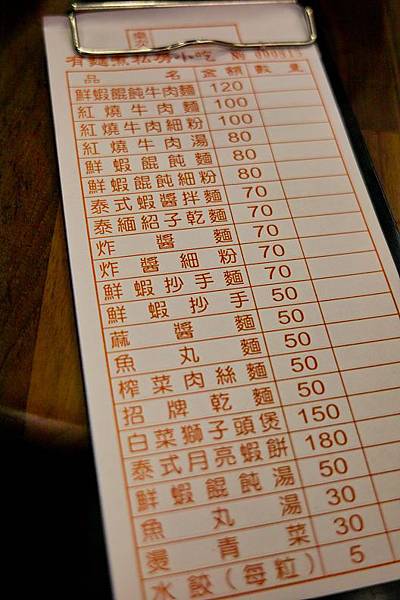 有麵煮私房小吃 №
品名 金額 數量
鮮蝦餛飩牛肉麵 120
紅燒牛肉麵 100
紅燒牛肉細粉 100
紅燒牛肉湯 80
鮮蝦餛飩麵 80
鮮蝦餛飩細粉 80
泰式蝦醬拌麵 70
泰緬紹子乾麵 70
炸醬麵 70
炸醬細粉 70
鮮蝦抄手麵 70
鮮蝦抄手 50
蔴醬麵 50
魚丸麵 50
榨菜肉絲麵 50
招牌乾麵 50
白菜獅子頭煲 150
泰式月亮蝦餅 180
鮮蝦餛飩湯 50
魚丸湯 30
燙青菜 30
水餃(每粒) 5